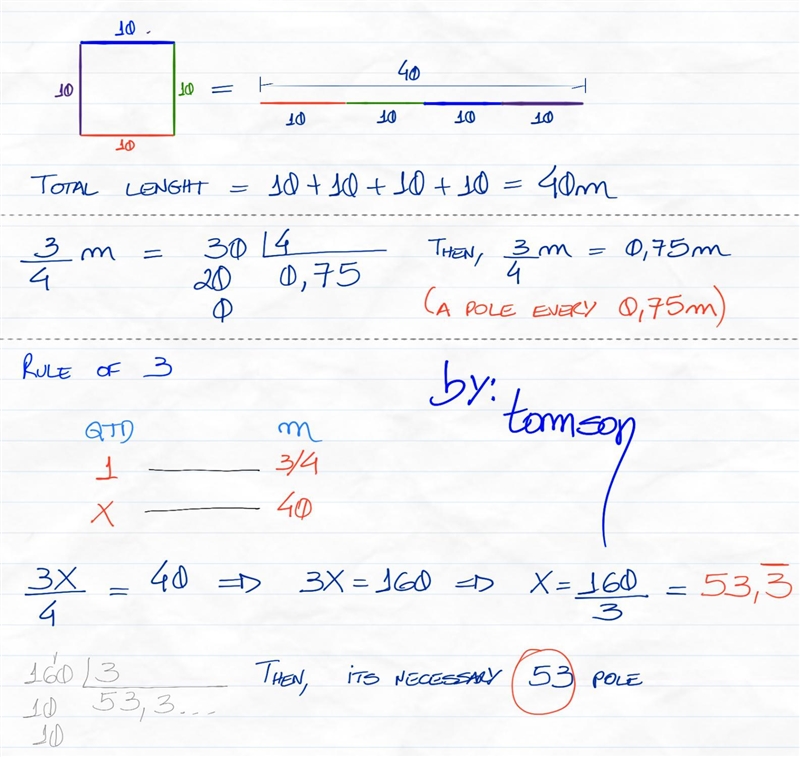 10
10 10 = 40
10 10 10 10
10
TOTAL LENGHT = 10 + 10 + 10 + 10 = 40m
3/4 m = 30 | 4 THEN, 3/4 m = 0,75m
20 0,75
0 (A POLE EVERY 0,75m)
RULE OF 3
by:
tomson
QTD m
1 3/4
X 40
3X/4 = 40 ⇒ 3X = 160 ⇒ X = 160/3 = 53,3̅
160 | 3 THEN, ITS NECESSARY 53 POLE
10 53,3...
10